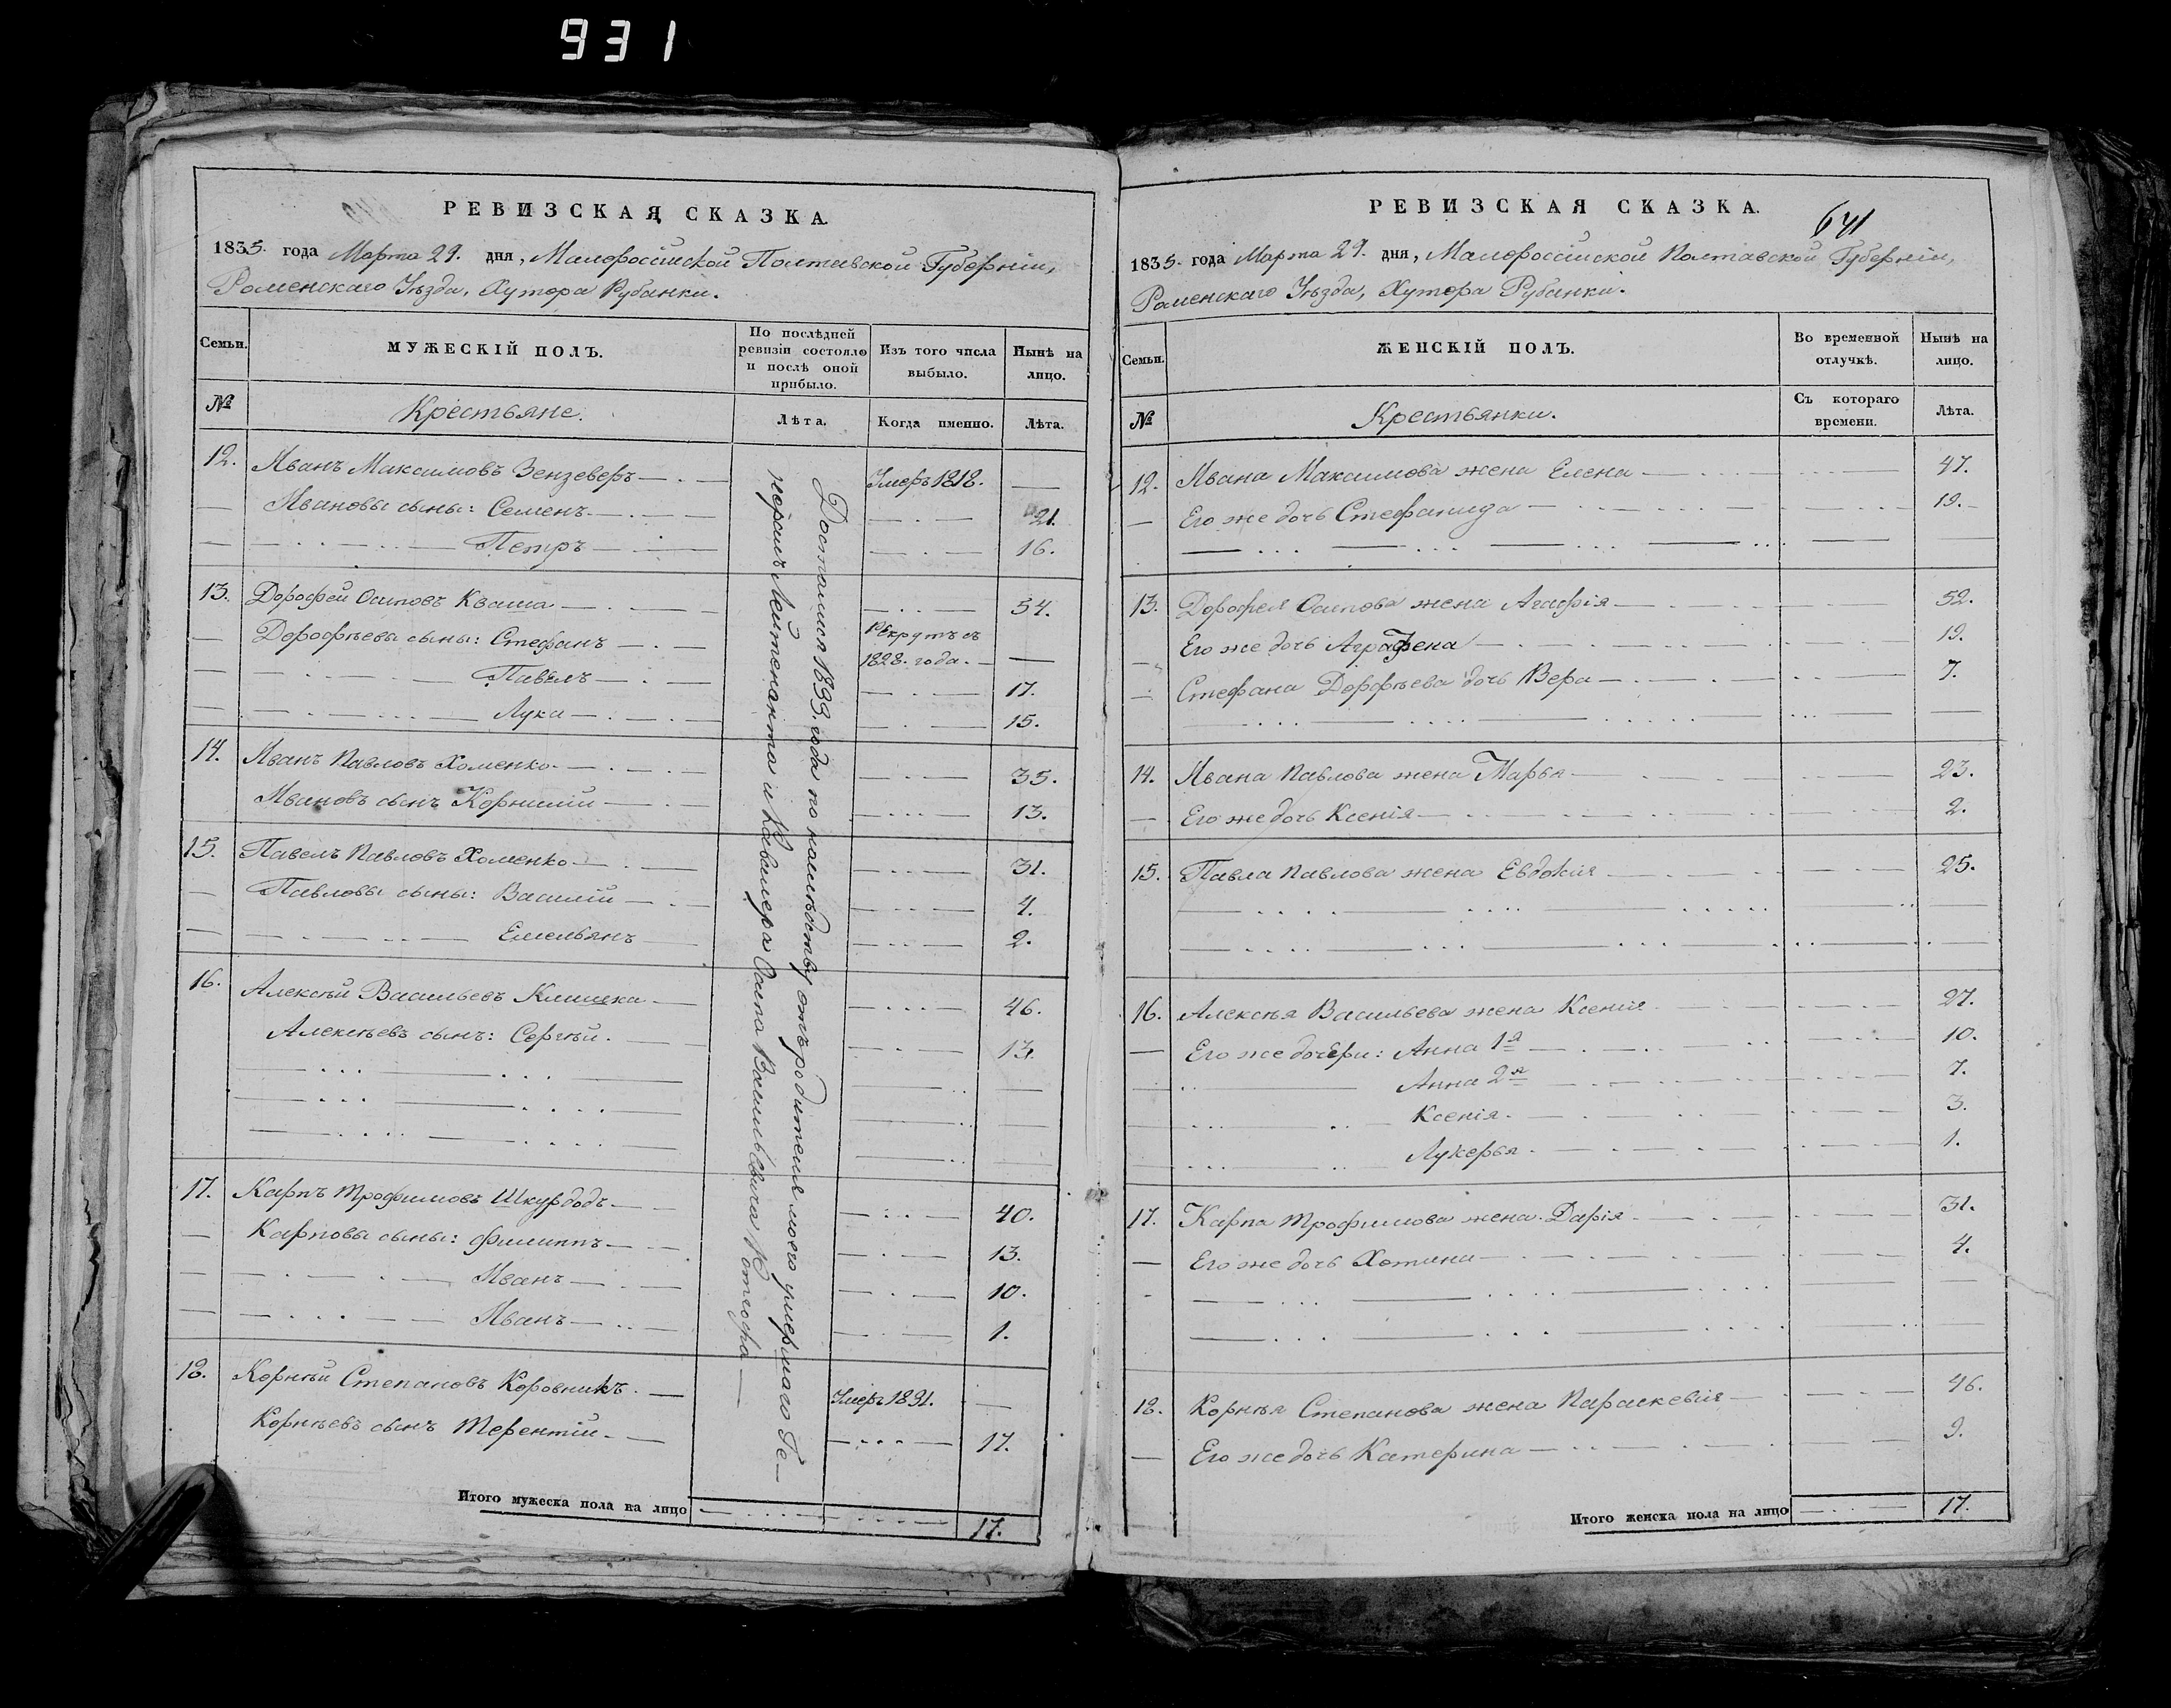 931
РЕВИЗСКАЯ СКАЗКА.
1835. года Марта 29. дня, Малороссійской Полтавской Губерніи,
Роменскаго Уѣзда, Хутора Рубанки.
Семьи.
МУЖЕСКІЙ ПОЛЪ.
По послѣдней ревизіи состояло и послѣ оной прибыло.
Изъ того числа выбыло.
Нынѣ на лицо.
№
Крестьяне.
Лѣта.
Когда именно.
Лѣта.
Досталися 1833. года по наслѣдству отъ родителя моего умершаго Ге-
нералъ Лейтенанта и Кавалера Осипа Васильевича
12. Иванъ Максимовъ Зензеверъ — Умеръ 1818. —
— Ивановы сыны: Семенъ — 21.
— Петръ — 16.
13. Дорофей Осиповъ Кваша — 54.
— Дорофѣевы сыны: Стефанъ — Рекрутъ съ 1828. года. —
— Павелъ — 17.
— Лука — 15.
14. Иванъ Павловъ Хоменко — 35.
Ивановъ сынъ Корнилій — 13.
15. Павелъ Павловъ Хоменко — 31.
— Павловы сыны: Василій — 4.
— Емельянъ — 2.
16. Алексѣй Васильевъ Клишка — 46.
Алексѣевъ сынъ: Сергѣй. — 13.
17. Карпъ Трофимовъ Шкурдодъ — 40.
— Карповы сыны: Филиппъ — 13.
— Иванъ — 10.
— Иванъ — 1.
18. Корнѣй Степановъ Коровникъ. — Умеръ 1831. —
Корнѣевъ сынъ Терентій — 17.
Итого мужеска пола на лицо 17.
641
РЕВИЗСКАЯ СКАЗКА.
1835. года Марта 29. дня, Малороссійской Полтавской Губерніи,
Роменскаго Уѣзда, Хутора Рубанки.
Семьи.
ЖЕНСКІЙ ПОЛЪ.
Во временной отлучкѣ.
Нынѣ на лицо.
№
Крестьянки.
Съ котораго времени.
Лѣта.
12. Ивана Максимова жена Елена — 47.
— Его же дочь Стефанида — 19.
13. Дорофея Осипова жена Агафія — 52.
— Его же дочь Аграфена — 19.
— Стефана Дорофѣева дочь Вера — 7.
14. Ивана Павлова жена Марья — 23.
— Его же дочь Ксенія — 2.
15. Павла Павлова жена Евдокія — 25.
16. Алексѣя Васильева жена Ксенія — 27.
— Его же дочери: Анна 1я — 10.
Анна 2я — 7.
Ксенія. — 3.
Лукерья. — 1.
17. Карпа Трофимова жена Дарія — 31.
— Его же дочь Хотина — 4.
18. Корнѣя Степанова жена Параскевія — 46.
— Его же дочь Катерина — 9.
Итого женска пола на лицо 17.